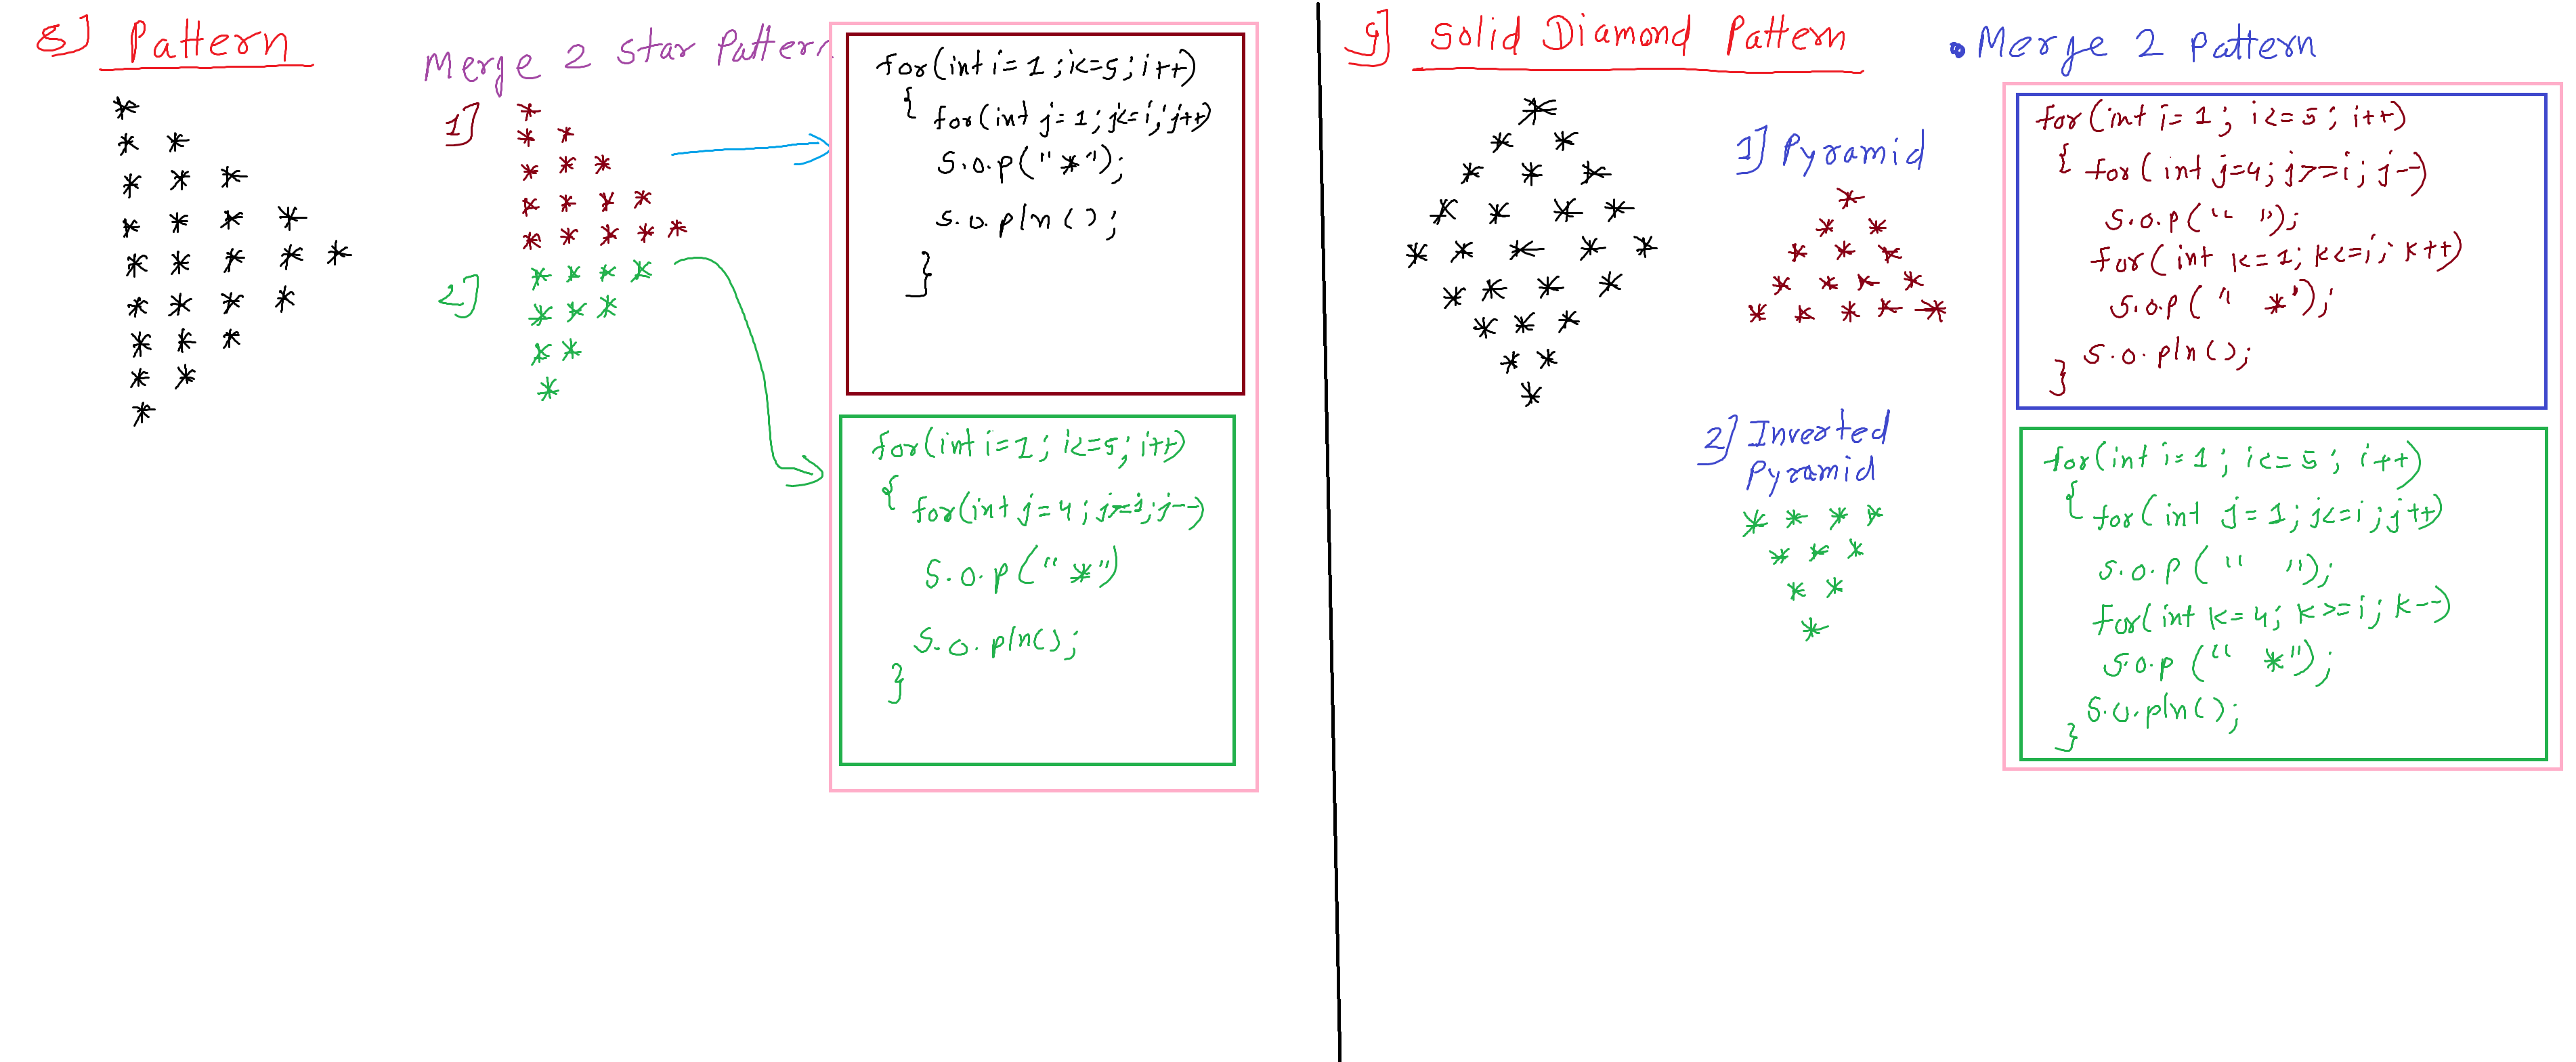 8] Pattern
*
* *
* * *
* * * *
* * * * *
* * * *
* * *
* *
*
Merge 2 Star Pattern
1]
*
* *
* * *
* * * *
* * * * *
2]
* * * *
* * *
* *
*
for(int i=1;i<=5;i++)
{ for(int j=1;j<=i;j++)
S.o.p("*");
S.o.pln();
}
for(int i=1;i<=5;i++)
{ for(int j=4;j>=i;j--)
S.o.p("*")
S.o.pln();
}
9] Solid Diamond Pattern
*
* *
* * *
* * * *
* * * * *
* * * *
* * *
* *
*
• Merge 2 pattern
1] Pyramid
*
* *
* * *
* * * *
* * * * *
2] Inverted
Pyramid
* * * *
* * *
* *
*
for(int i=1; i<=5; i++)
{ for(int j=4;j>=i;j--)
S.o.p(" ");
for(int k=1;k<=i;k++)
S.o.p(" *");
S.o.pln();
}
for(int i=1; i<=5; i++)
{ for(int j=1;j<=i;j++)
S.o.p(" ");
for(int k=4;k>=i;k--)
S.o.p(" *");
S.o.pln();
}